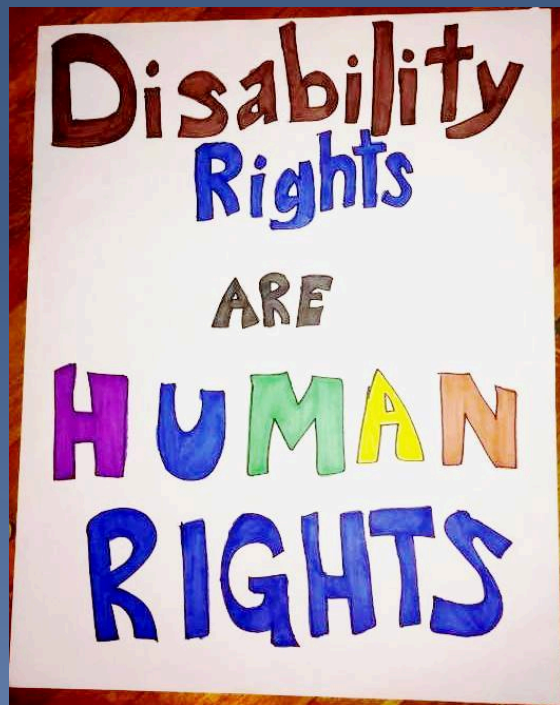 Disability
Rights
ARE
HUMAN
RIGHTS